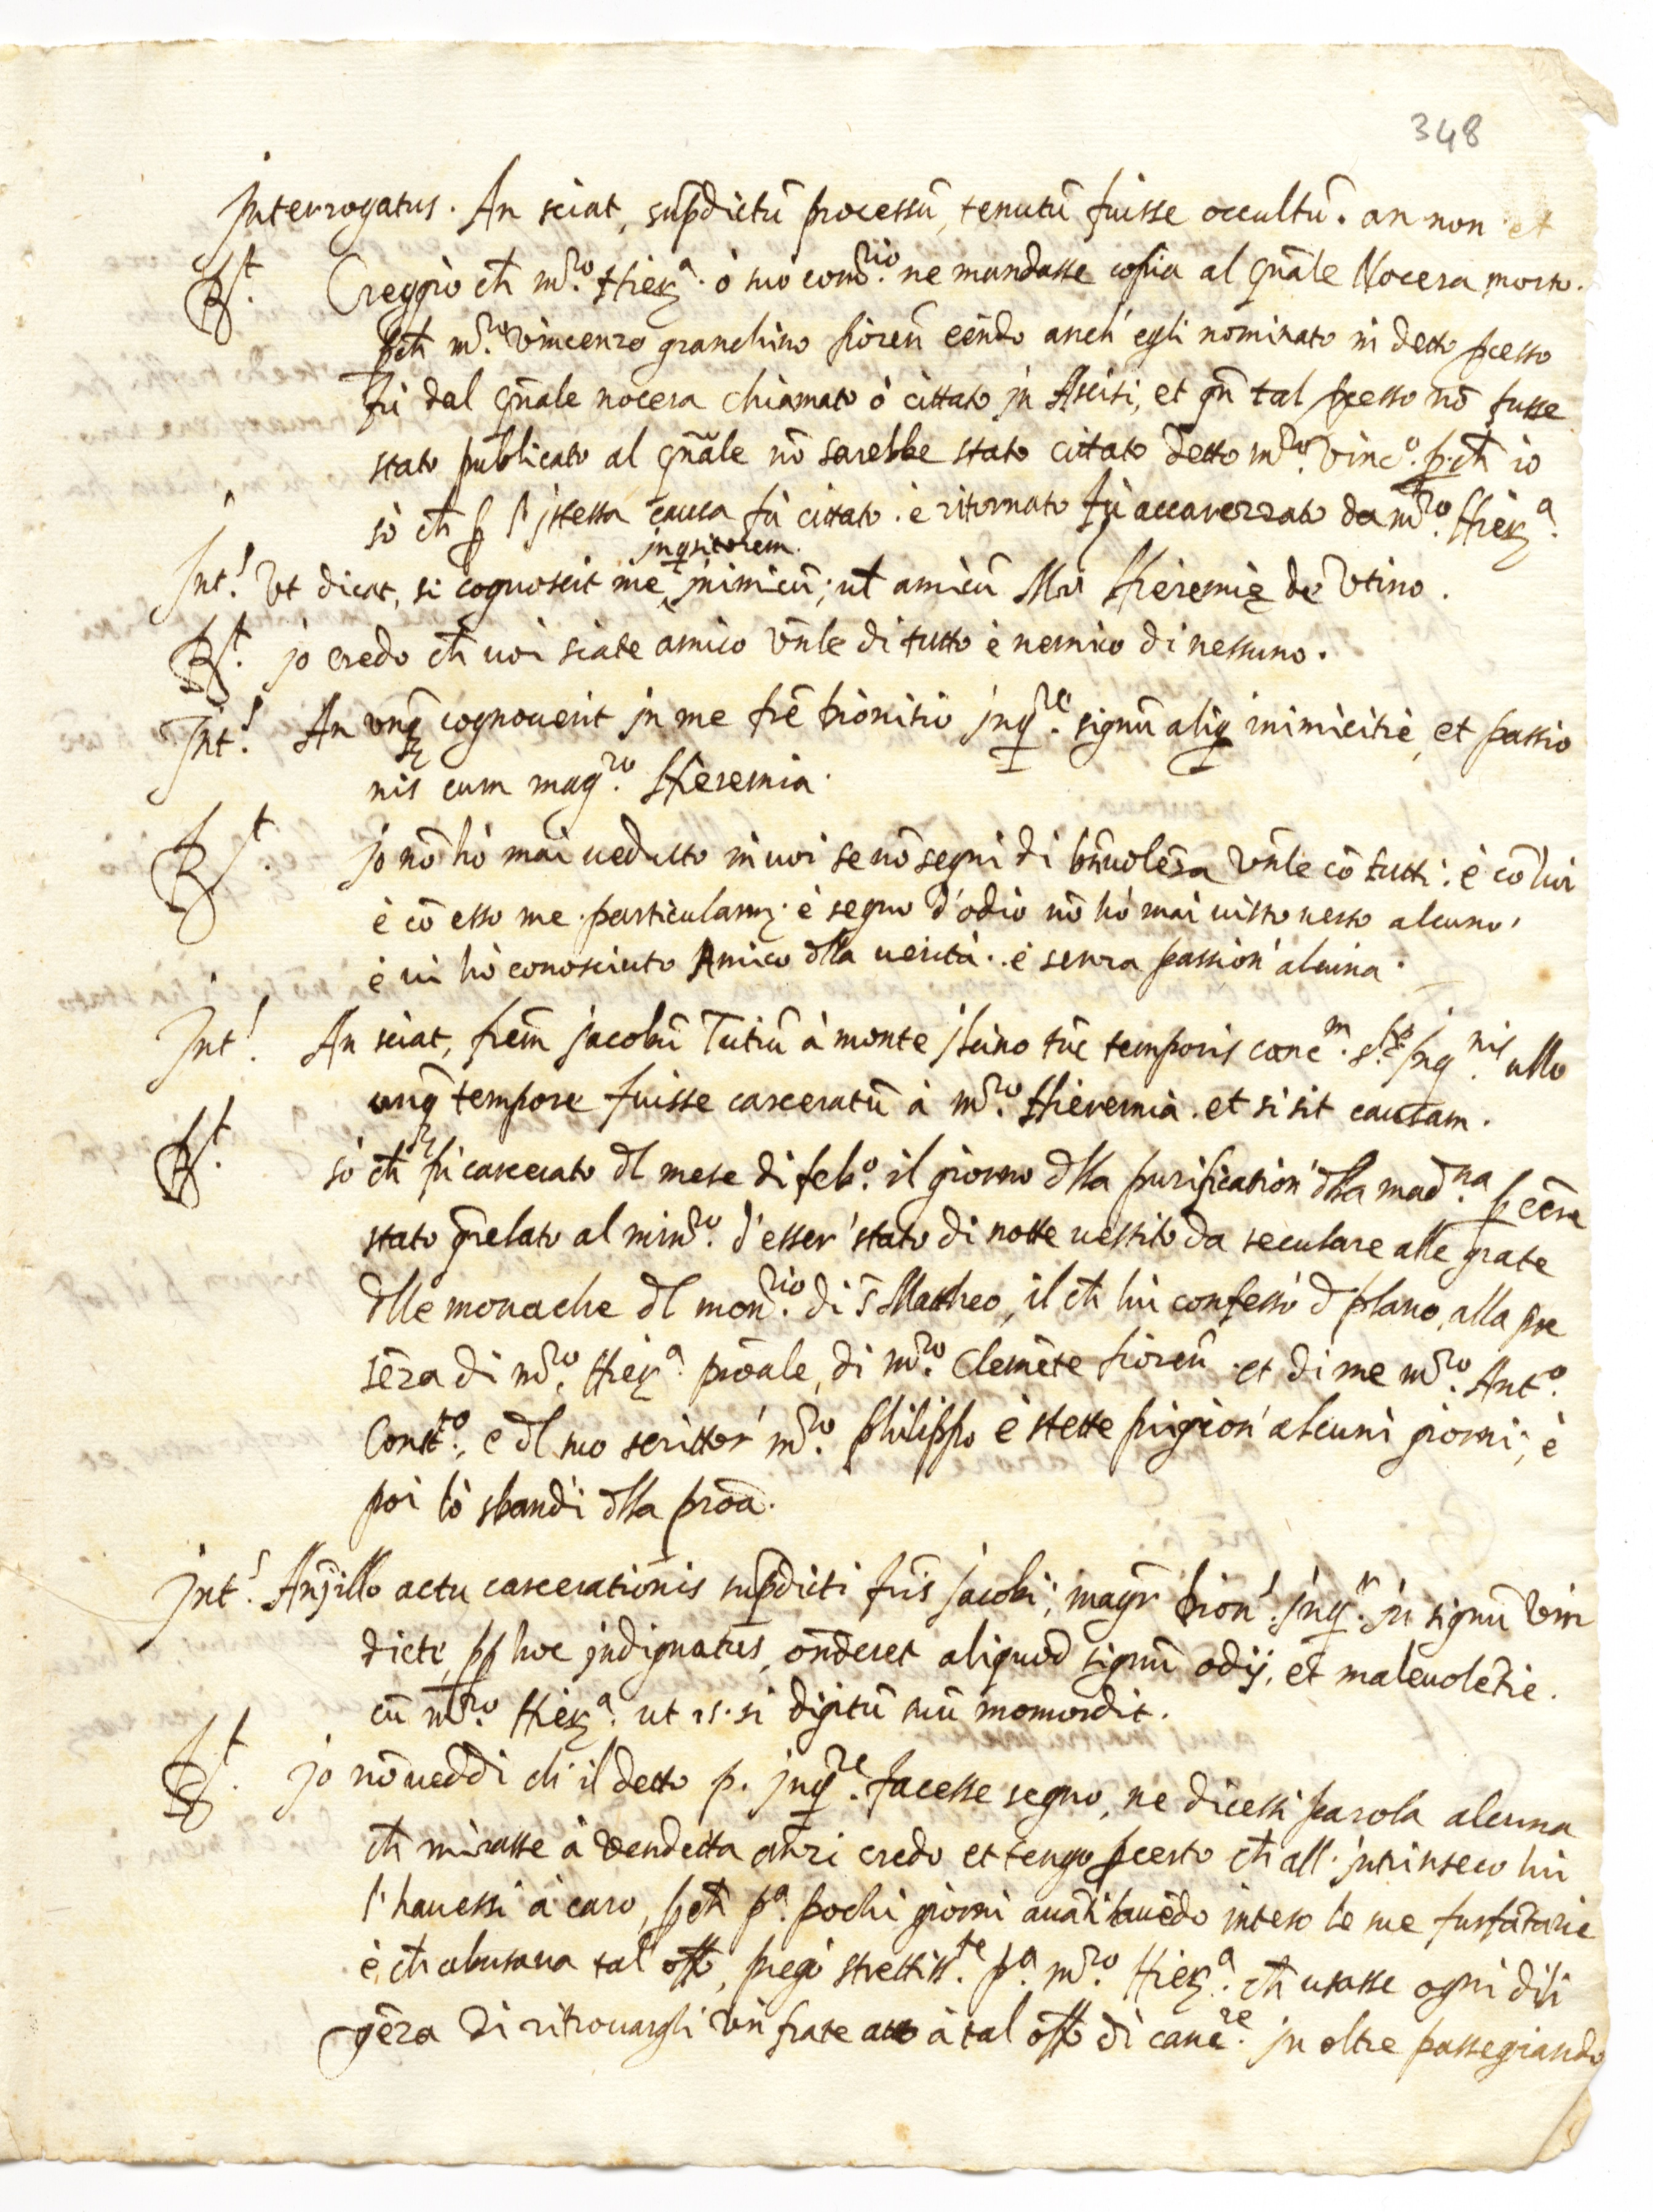 348
Interrogatus. An sciat, sup̄dictū processū, tenutū fuisse occultū. an non et
Rt. Creggio ch̄ m.ro Hier.a ò suo com.rio ne mandasse copia al gn̄ale Nocera morto.
ꝑch̄ m.ro Vincenzo granchino fioren̄ eēndo anch' egli nominato in detto ꝓcesso
fù dal gn̄ale nocera chiamato ò cittato in Ascisi, et qn̄ tal ꝓcesso nō fusse
stato publicato al gn̄ale nō sarebbe stato cittato detto m.ro Vinc.o ꝑch̄ io
sò ch̄ ꝑ l' istessa causa fù cittato. è ritornato fù accarezzato da m.ro Hier.a
inqsitorem.
Int.s Vt dicat, si cognoscit me inimicū; ul̄ amicū Mr̄i Hieremię de Vtino.
Rt. jo credo ch̄ uoi siate amico Vn̄le di tutto è nemico di nessuno.
Int.s An vnq̄ cognouerit in me fr̄e Dionisio inq.re signū aliq̄ inimicitiè, et passio
nis cum mag.ro Hieremia.
Rt. jo nō hò mai ueduto in uoi se nō segni di bn̄uolēza Vn̄le cō tutti. è cō lui
è cō esso me. particularm. è segno d'odio nō hò mai uisto uerso alcuno,
è ui hò conosciuto Amico dl̄la uerità. è senza passion' alcuna.
Int.s An sciat, frēm jacobū Tutiū à monte ilcino tūc temporis canc.m s.te Inq.nis ullo
unq̄ tempore fuisse carceratū à m.ro Hieremia. et si sit causam.
Rt. sò ch̄ fù carcerato dl̄ mese di feb.o il giorno dl̄la purification' dl̄la mad.na ꝑ eēre
stato q̄relato al min.ro d'esser' stato di notte uestito da seculare alle grate
dl̄le monache dl̄ mon.rio di S. Mattheo, il ch̄ lui confessò d plano, alla pre
sēza di m.ro Hier.a prōale, di m.ro Clemēte fioren̄ et di me m.ro Ant.o
Const.o, e dl̄ suo scrittor' m.ro Philippo è stette prigion' alcuni giorni, è
poi lò sbandi dl̄la proā.
Int.s An jn illo actu carcerationis sup̄dicti fr̄is jacobi, magr̄ Dion.s inq.r in signū Vin
dictè, ꝓp hoc indignatus, ōnderet aliquod signū odij, et maleuolētie.
cū m.ro Hier.a ut is. si digitū suū momordit.
Rt. jo nō ueddi ch' il detto p. inq.re facesse segno, ne dicessi parola alcuna
ch̄ mirasse à vendetta anzi credo et tengo ꝑ certo ch̄ all' intrinseco lui
l' hauessi à caro, ꝑch̄ p.a pochi giorni auāti hauēdo inteso le sue furfātarie
è ch̄ abusaua tal off.o, pregò strettiss.te p.a m.ro Hier.a ch̄ usasse ogni dili
gēza di ritrouargli vn frate atto à tal off.o di canc.re in oltre passegiando